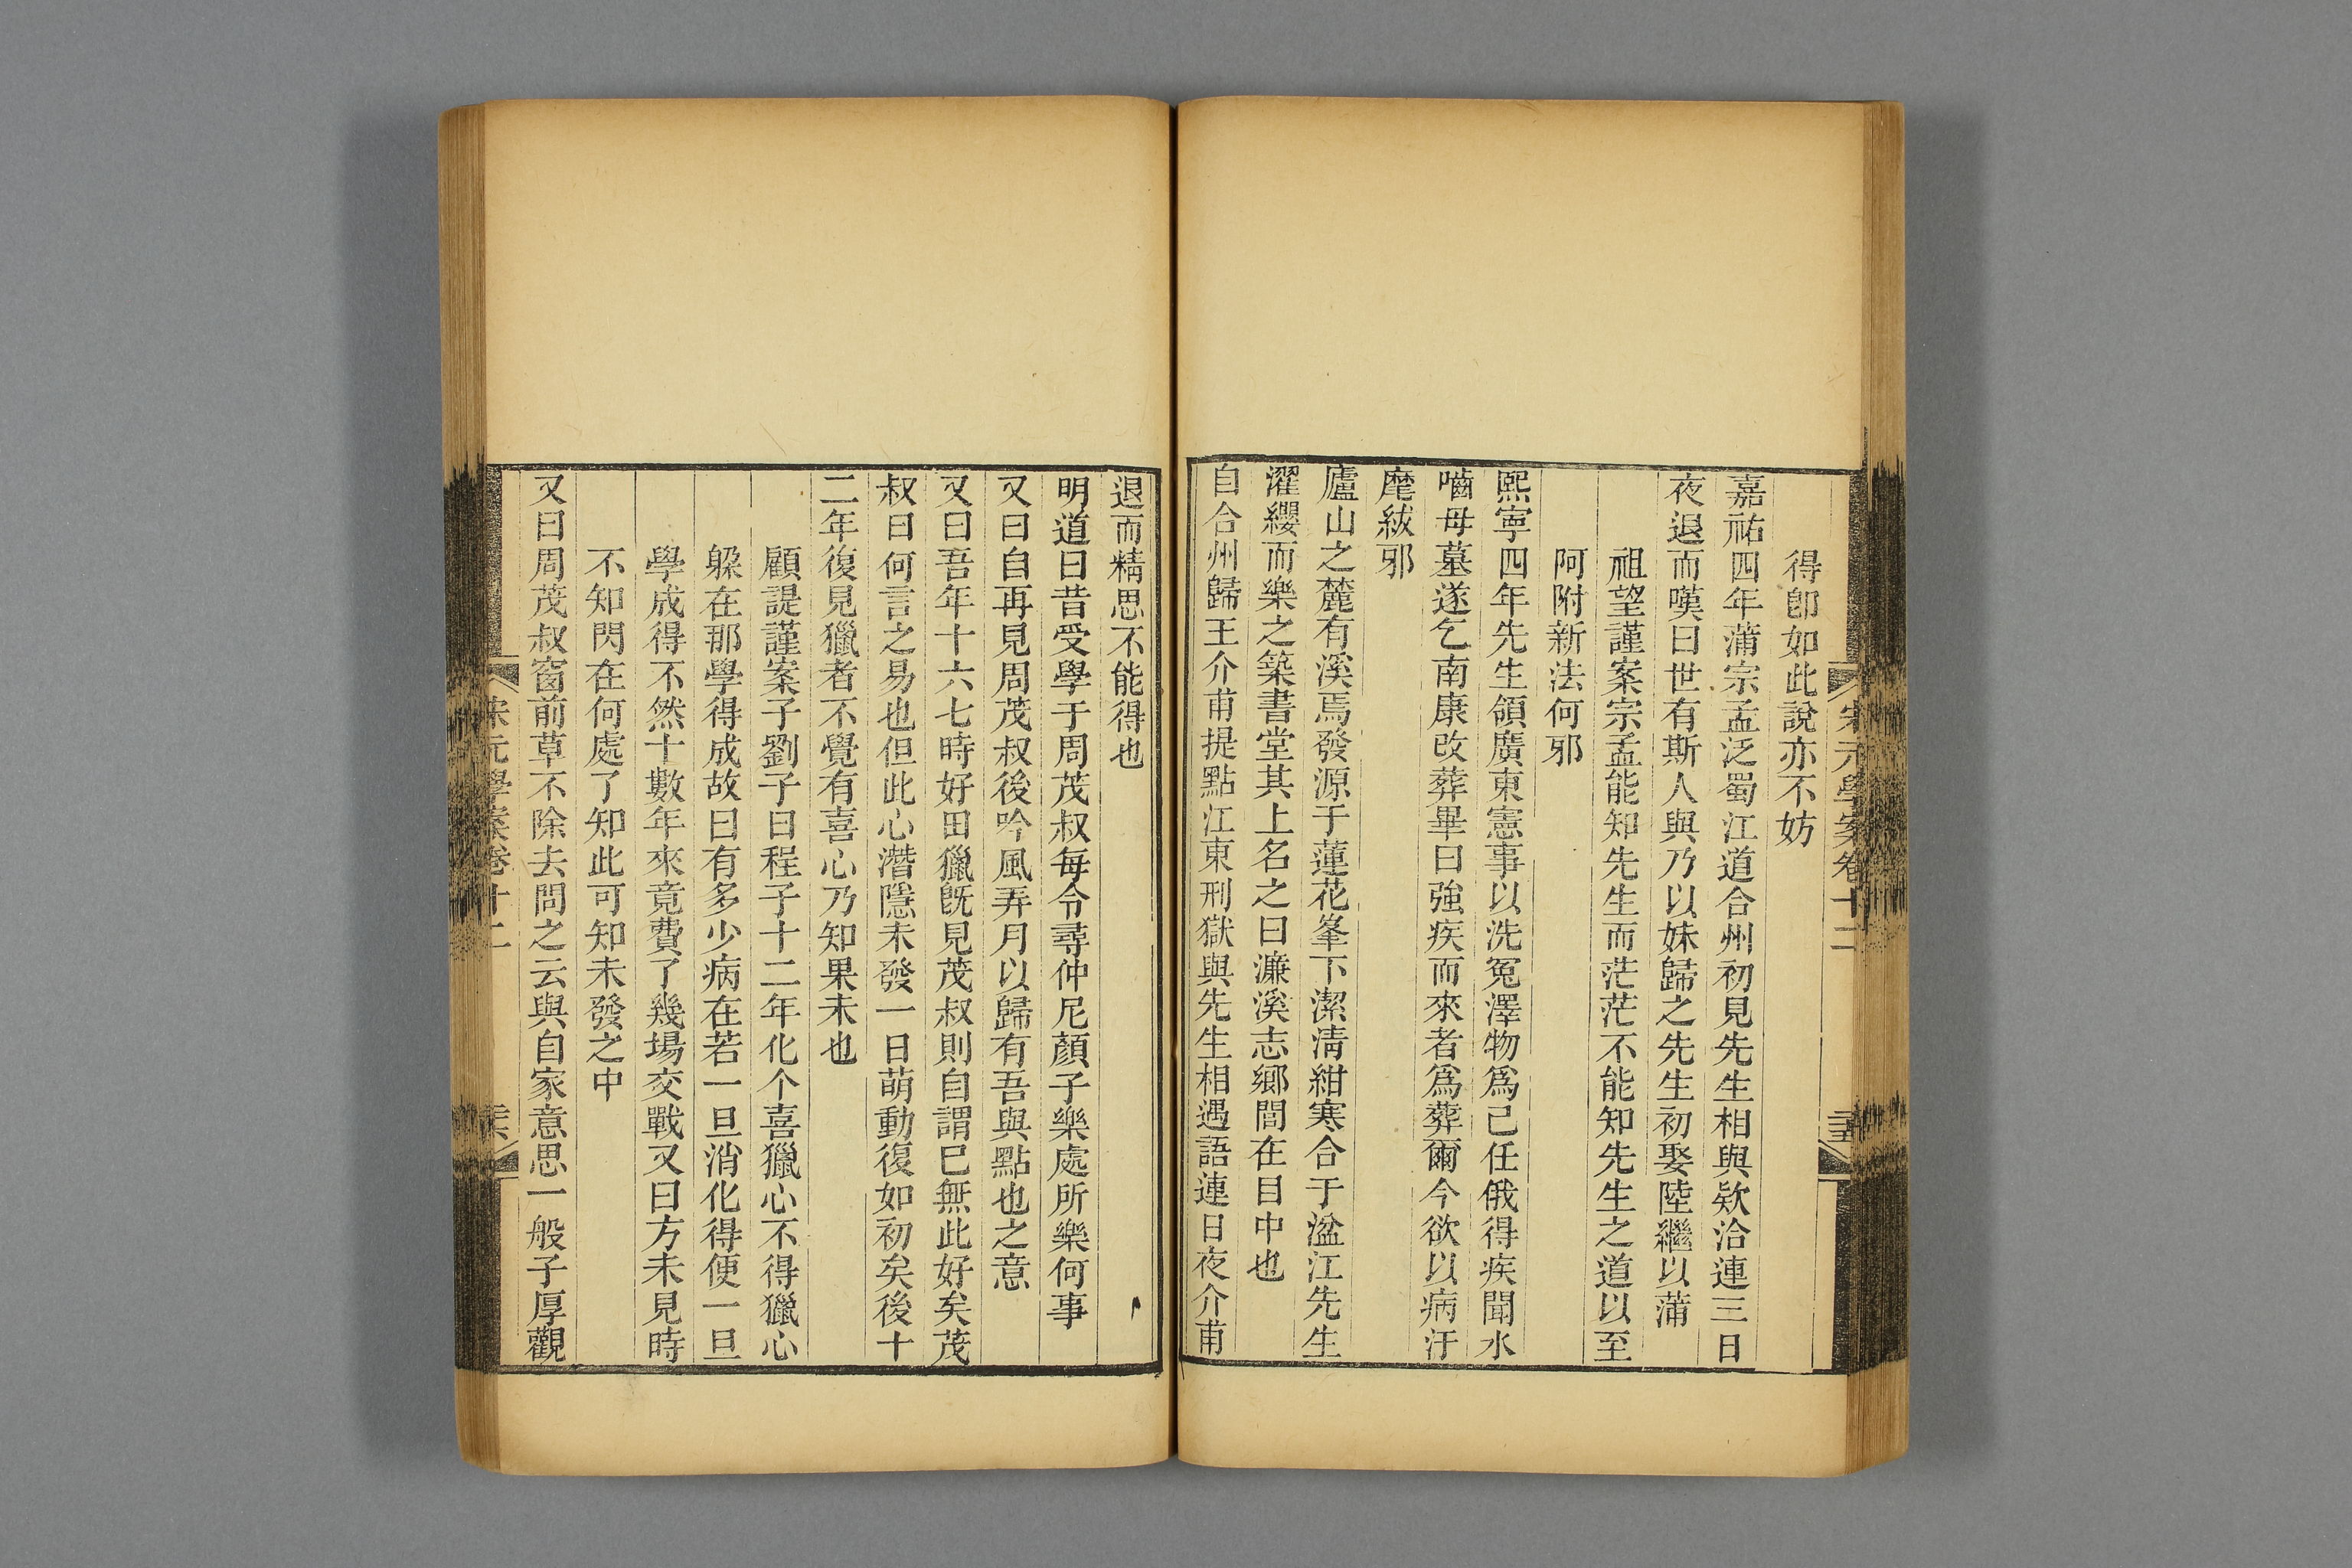 宋元學案卷十二
得卽如此說亦不妨
嘉祐四年蒲宗孟泛蜀江道合州初見先生相與欵洽連三日
夜退而嘆曰世有斯人與乃以妹歸之先生初娶陸繼以蒲
祖望謹案宗孟能知先生而茫茫不能知先生之道以至
阿附新法何邪
熙寧四年先生領廣東憲事以洗冤澤物爲己任俄得疾聞水
嚙母墓遂乞南康改葬畢曰強疾而來者爲葬爾今欲以病汙
麾紱邪
廬山之麓有溪焉發源于蓮花峯下潔淸紺寒合于湓江先生
濯纓而樂之築書堂其上名之曰濂溪志鄉閭在目中也
自合州歸王介甫提點江東刑獄與先生相遇語連日夜介甫
退而精思不能得也
明道曰昔受學于周茂叔每令尋仲尼顏子樂處所樂何事
又曰自再見周茂叔後吟風弄月以歸有吾與點也之意
又曰吾年十六七時好田獵旣見茂叔則自謂已無此好矣茂
叔曰何言之易也但此心潛隱未發一日萌動復如初矣後十
二年復見獵者不覺有喜心乃知果未也
顧諟謹案子劉子曰程子十二年化个喜獵心不得獵心
躲在那學得成故曰有多少病在若一旦消化得便一旦
學成得不然十數年來竟費了幾場交戰又曰方未見時
不知閃在何處了知此可知未發之中
又曰周茂叔窗前草不除去問之云與自家意思一般子厚觀
宋元學案卷十二